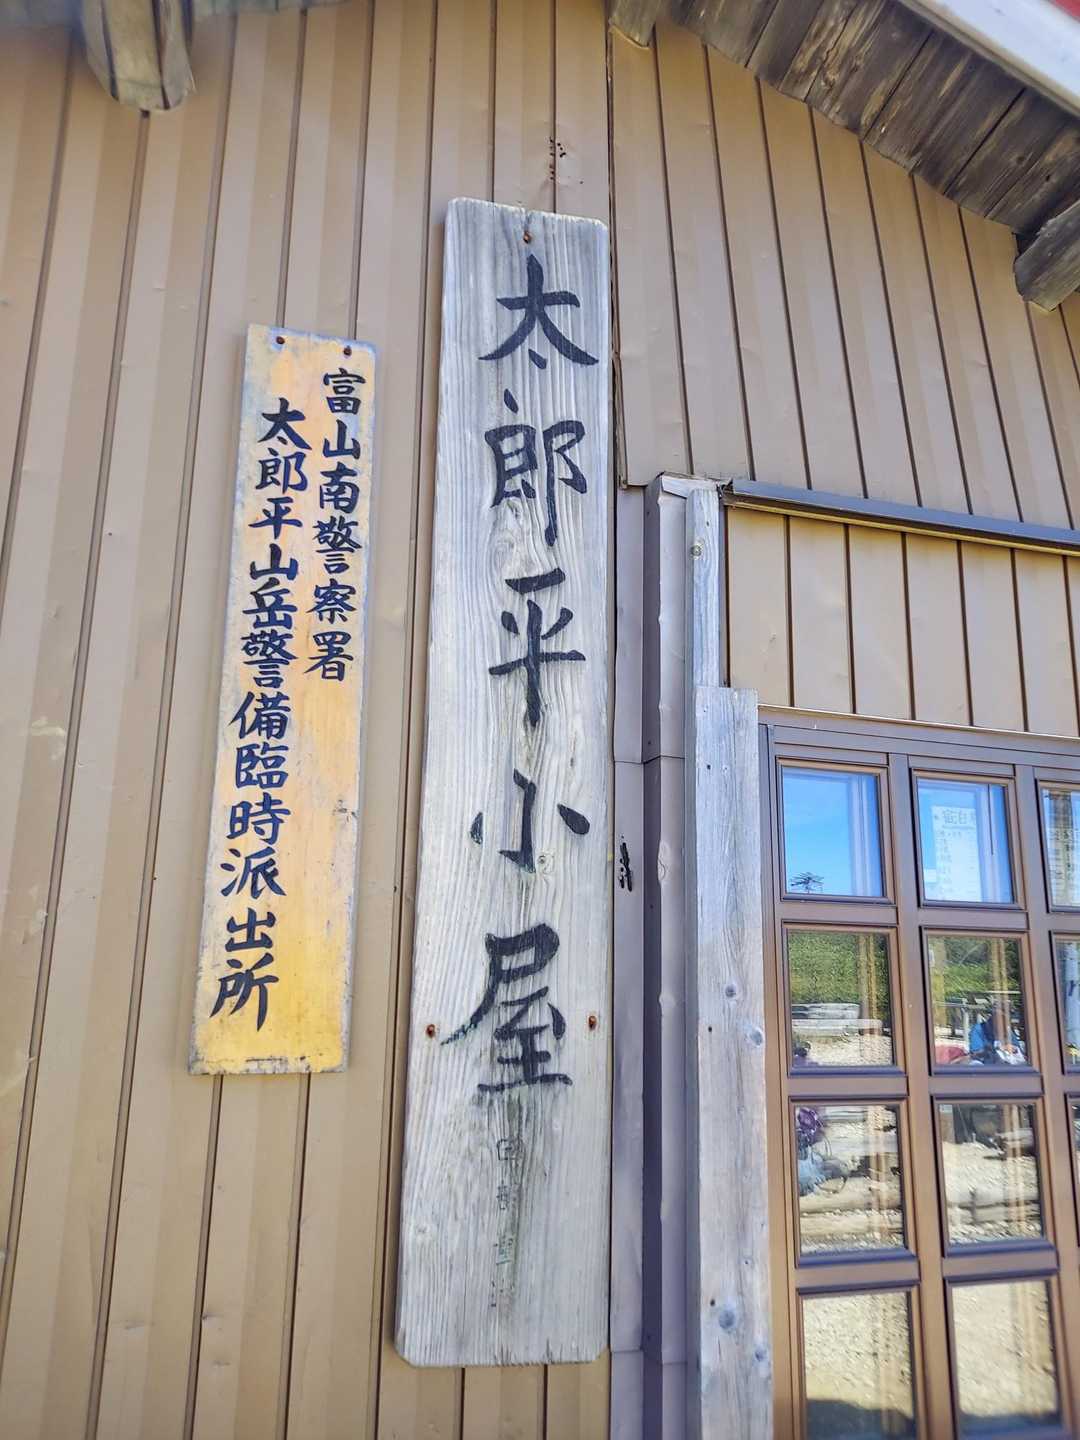 太郎平小屋
富山南警察署
太郎平山岳警備臨時派出所